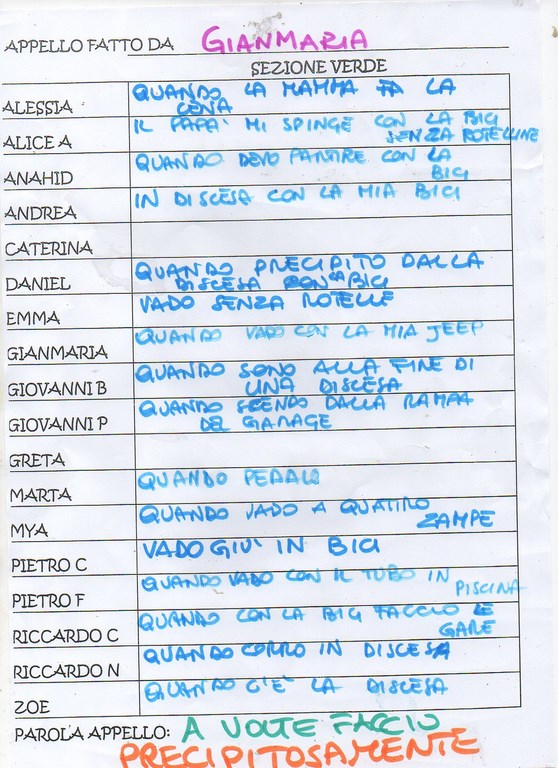 APPELLO FATTO DA GIANMARIA
SEZIONE VERDE
ALESSIA QUANDO LA MAMMA FA LA
CENA
ALICE A IL PAPA' MI SPINGE CON LA BICI
SENZA ROTELLINE
ANAHID QUANDO DEVO PARTIRE CON LA
BICI
ANDREA IN DISCESA CON LA MIA BICI
CATERINA
DANIEL QUANDO PRECIPITO DALLA
DISCESA CON LA BICI
EMMA VADO SENZA ROTELLE
GIANMARIA QUANDO VADO CON LA MIA JEEP
GIOVANNI B QUANDO SONO ALLA FINE DI
UNA DISCESA
GIOVANNI P QUANDO SCENDO DALLA RAMPA
DEL GARAGE
GRETA
MARTA QUANDO PEDALO
MYA QUANDO VADO A QUATTRO
ZAMPE
PIETRO C VADO GIU' IN BICI
PIETRO F QUANDO VADO CON IL TUBO IN
PISCINA
RICCARDO C QUANDO CON LA BICI FACCIO LE
GARE
RICCARDO N QUANDO CORRO IN DISCESA
ZOE QUANDO C'È LA DISCESA
PAROLA APPELLO: A VOLTE FACCIO
PRECIPITOSAMENTE